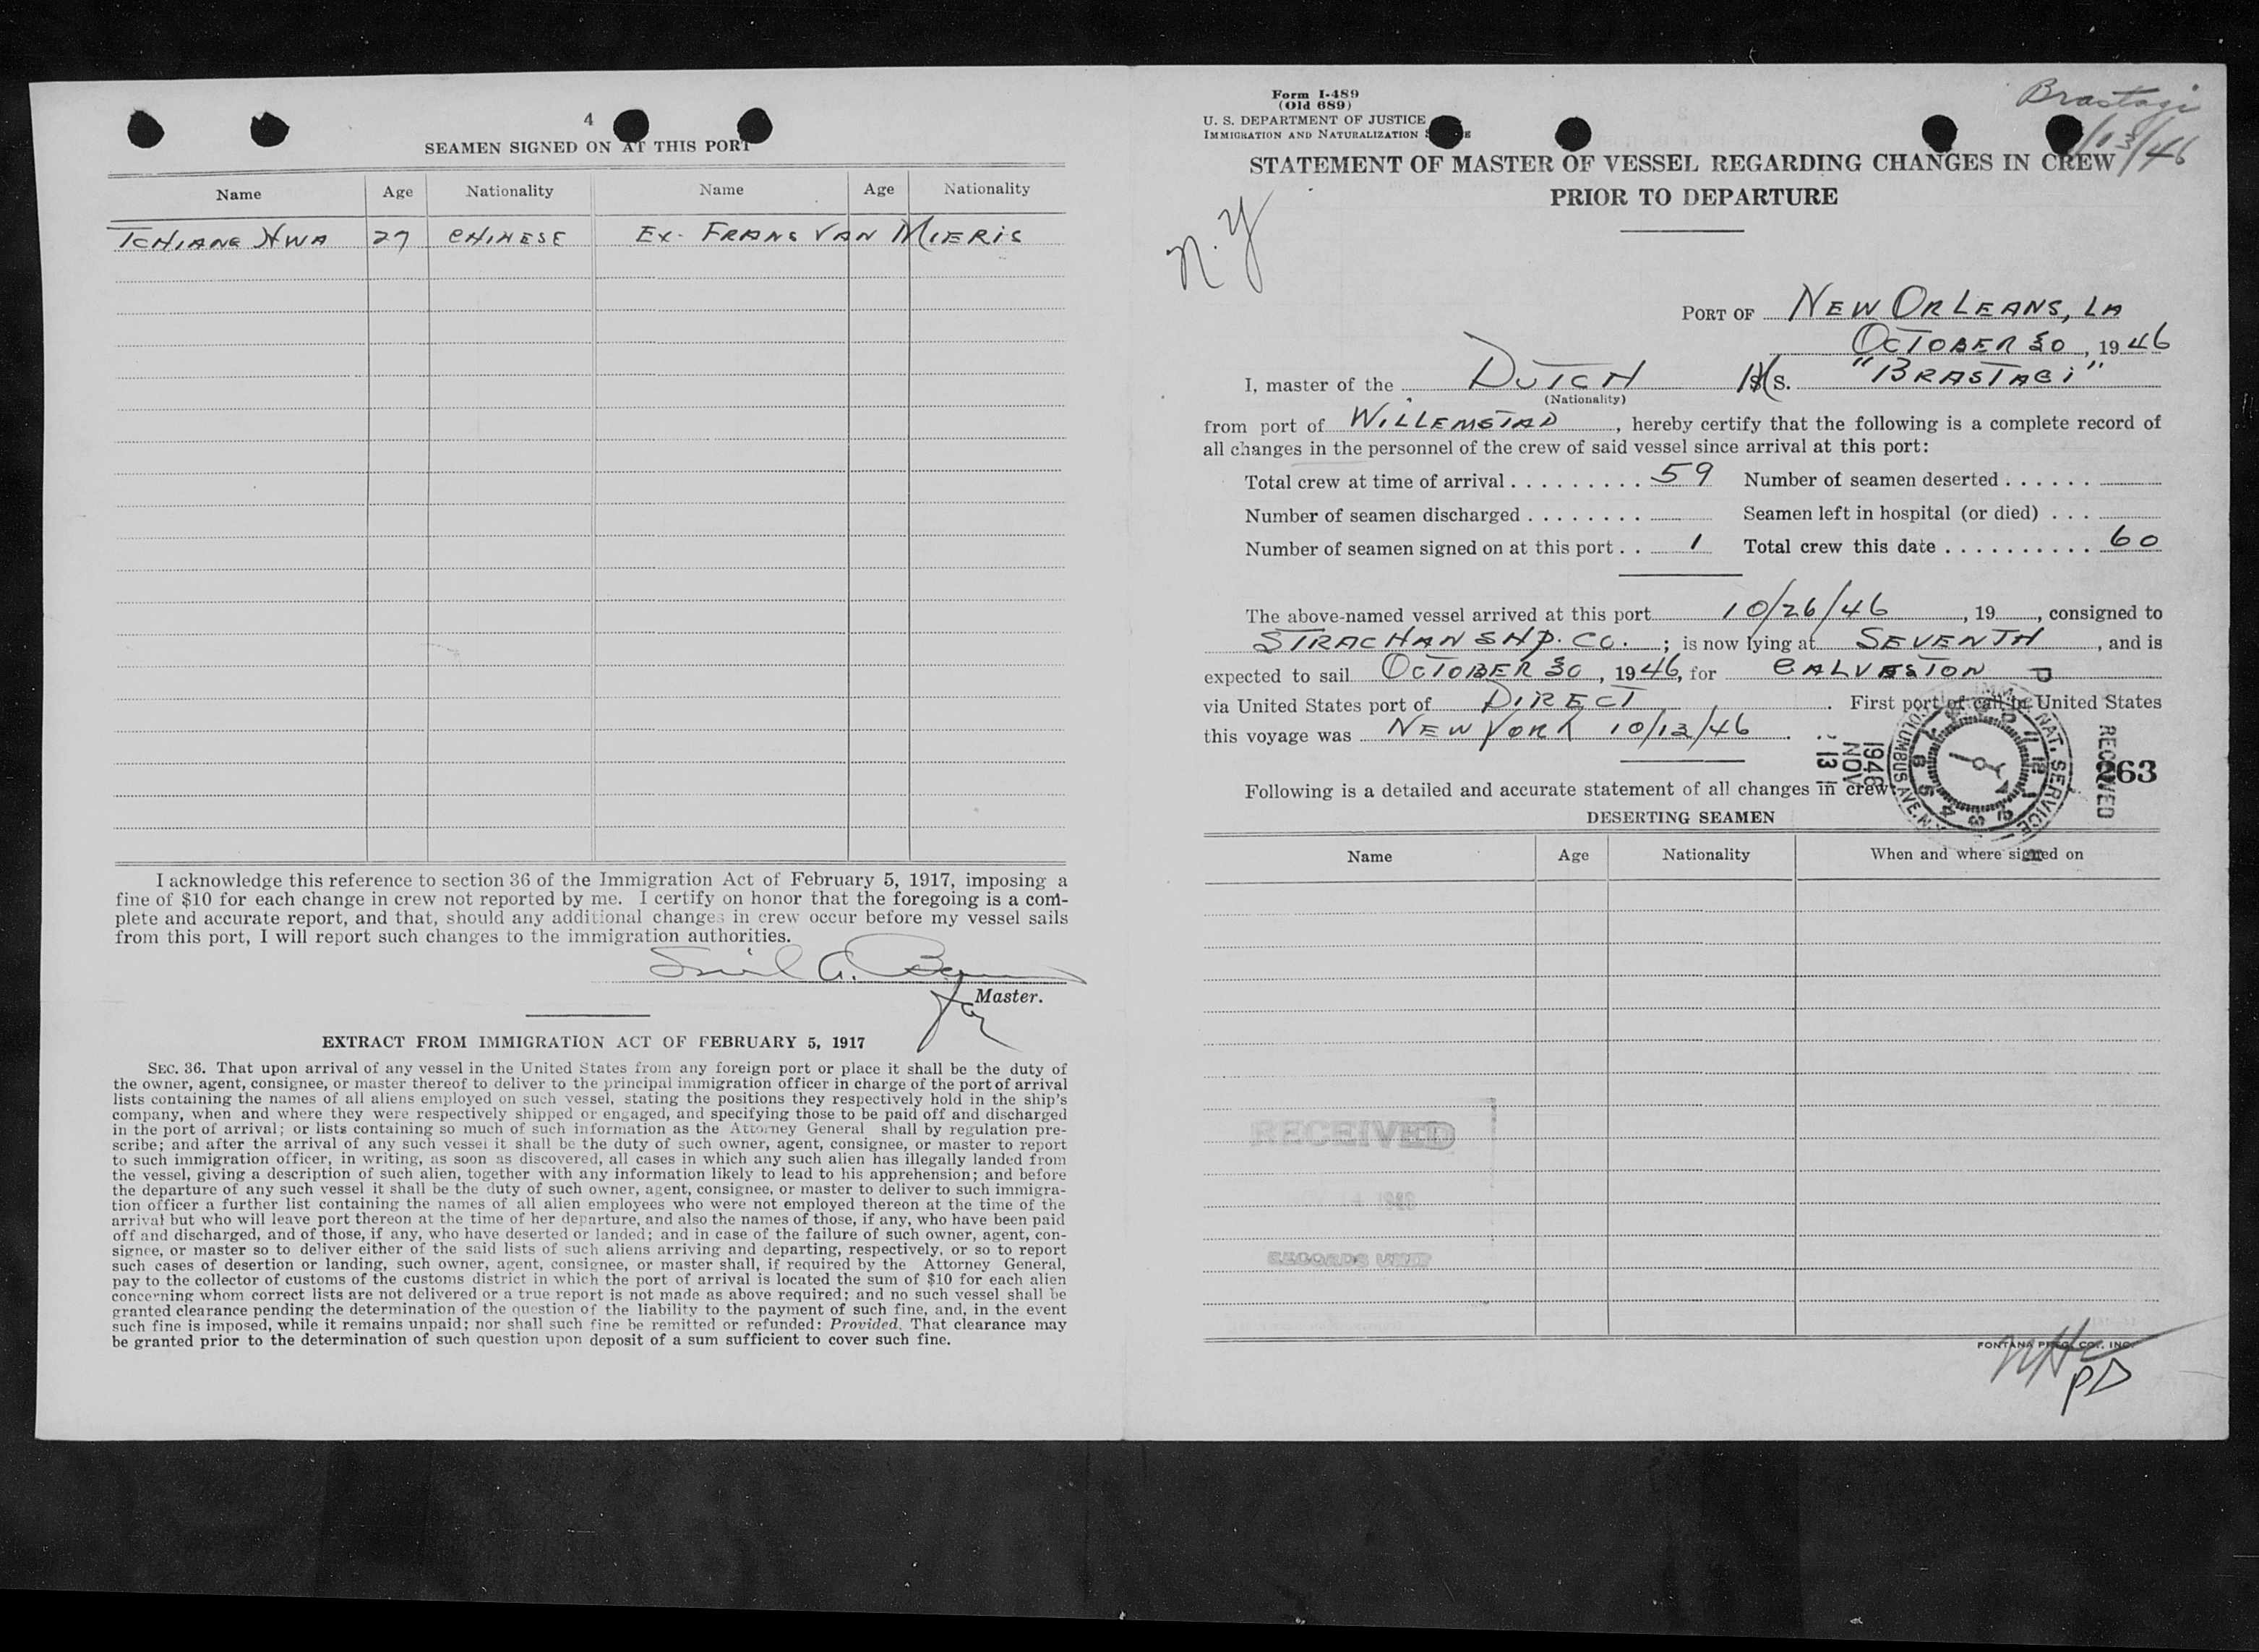 4
SEAMEN SIGNED ON AT THIS PORT
Name Age Nationality Name Age Nationality
TCHIANG HWA 27 CHINESE EX- FRANS VAN MIERIS
I acknowledge this reference to section 36 of the Immigration Act of February 5, 1917, imposing a
fine of $10 for each change in crew not reported by me. I certify on honor that the foregoing is a com-
plete and accurate report, and that, should any additional changes in crew occur before my vessel sails
from this port, I will report such changes to the immigration authorities.
Master.
EXTRACT FROM IMMIGRATION ACT OF FEBRUARY 5, 1917
SEC. 36. That upon arrival of any vessel in the United States from any foreign port or place it shall be the duty of
the owner, agent, consignee, or master thereof to deliver to the principal immigration officer in charge of the port of arrival
lists containing the names of all aliens employed on such vessel, stating the positions they respectively hold in the ship's
company, when and where they were respectively shipped or engaged, and specifying those to be paid off and discharged
in the port of arrival; or lists containing so much of such information as the Attorney General shall by regulation pre-
scribe; and after the arrival of any such vessel it shall be the duty of such owner, agent, consignee, or master to report
to such immigration officer, in writing, as soon as discovered, all cases in which any such alien has illegally landed from
the vessel, giving a description of such alien, together with any information likely to lead to his apprehension; and before
the departure of any such vessel it shall be the duty of such owner, agent, consignee, or master to deliver to such immigra-
tion officer a further list containing the names of all alien employees who were not employed thereon at the time of the
arrival but who will leave port thereon at the time of her departure, and also the names of those, if any, who have been paid
off and discharged, and of those, if any, who have deserted or landed; and in case of the failure of such owner, agent, con-
signee, or master so to deliver either of the said lists of such aliens arriving and departing, respectively, or so to report
such cases of desertion or landing, such owner, agent, consignee, or master shall, if required by the Attorney General,
pay to the collector of customs of the customs district in which the port of arrival is located the sum of $10 for each alien
concerning whom correct lists are not delivered or a true report is not made as above required; and no such vessel shall be
granted clearance pending the determination of the question of the liability to the payment of such fine, and, in the event
such fine is imposed, while it remains unpaid; nor shall such fine be remitted or refunded: Provided, That clearance may
be granted prior to the determination of such question upon deposit of a sum sufficient to cover such fine.
Form I-489
(Old 689)
U. S. DEPARTMENT OF JUSTICE
IMMIGRATION AND NATURALIZATION
Brastagi
/13/46
STATEMENT OF MASTER OF VESSEL REGARDING CHANGES IN CREW
PRIOR TO DEPARTURE
N.Y
PORT OF NEW ORLEANS, LA
OCTOBER 30, 1946
I, master of the DUTCH S. "BRASTAGI"
(Nationality)
from port of WILLEMSTAD, hereby certify that the following is a complete record of
all changes in the personnel of the crew of said vessel since arrival at this port:
Total crew at time of arrival . . . . . . . . . 59 Number of seamen deserted . . . . . .
Number of seamen discharged . . . . . . . . Seamen left in hospital (or died) . . .
Number of seamen signed on at this port . . 1 Total crew this date . . . . . . . . . . 60
The above-named vessel arrived at this port 10/26/46, 19, consigned to
STRACHAN SHP. CO. ; is now lying at SEVENTH, and is
expected to sail OCTOBER 30, 1946, for GALVESTON
via United States port of DIRECT. First port of call in United States
this voyage was NEW YORK 10/12/46.
1946 NOV 13
NAT. SERVICE
COLUMBUS AVE. N.
RECEIVED
263
Following is a detailed and accurate statement of all changes in crew
DESERTING SEAMEN
Name Age Nationality When and where signed on
RECEIVED
RECORDS UNIT
FONTANA PRTG. CO., INC.
PD